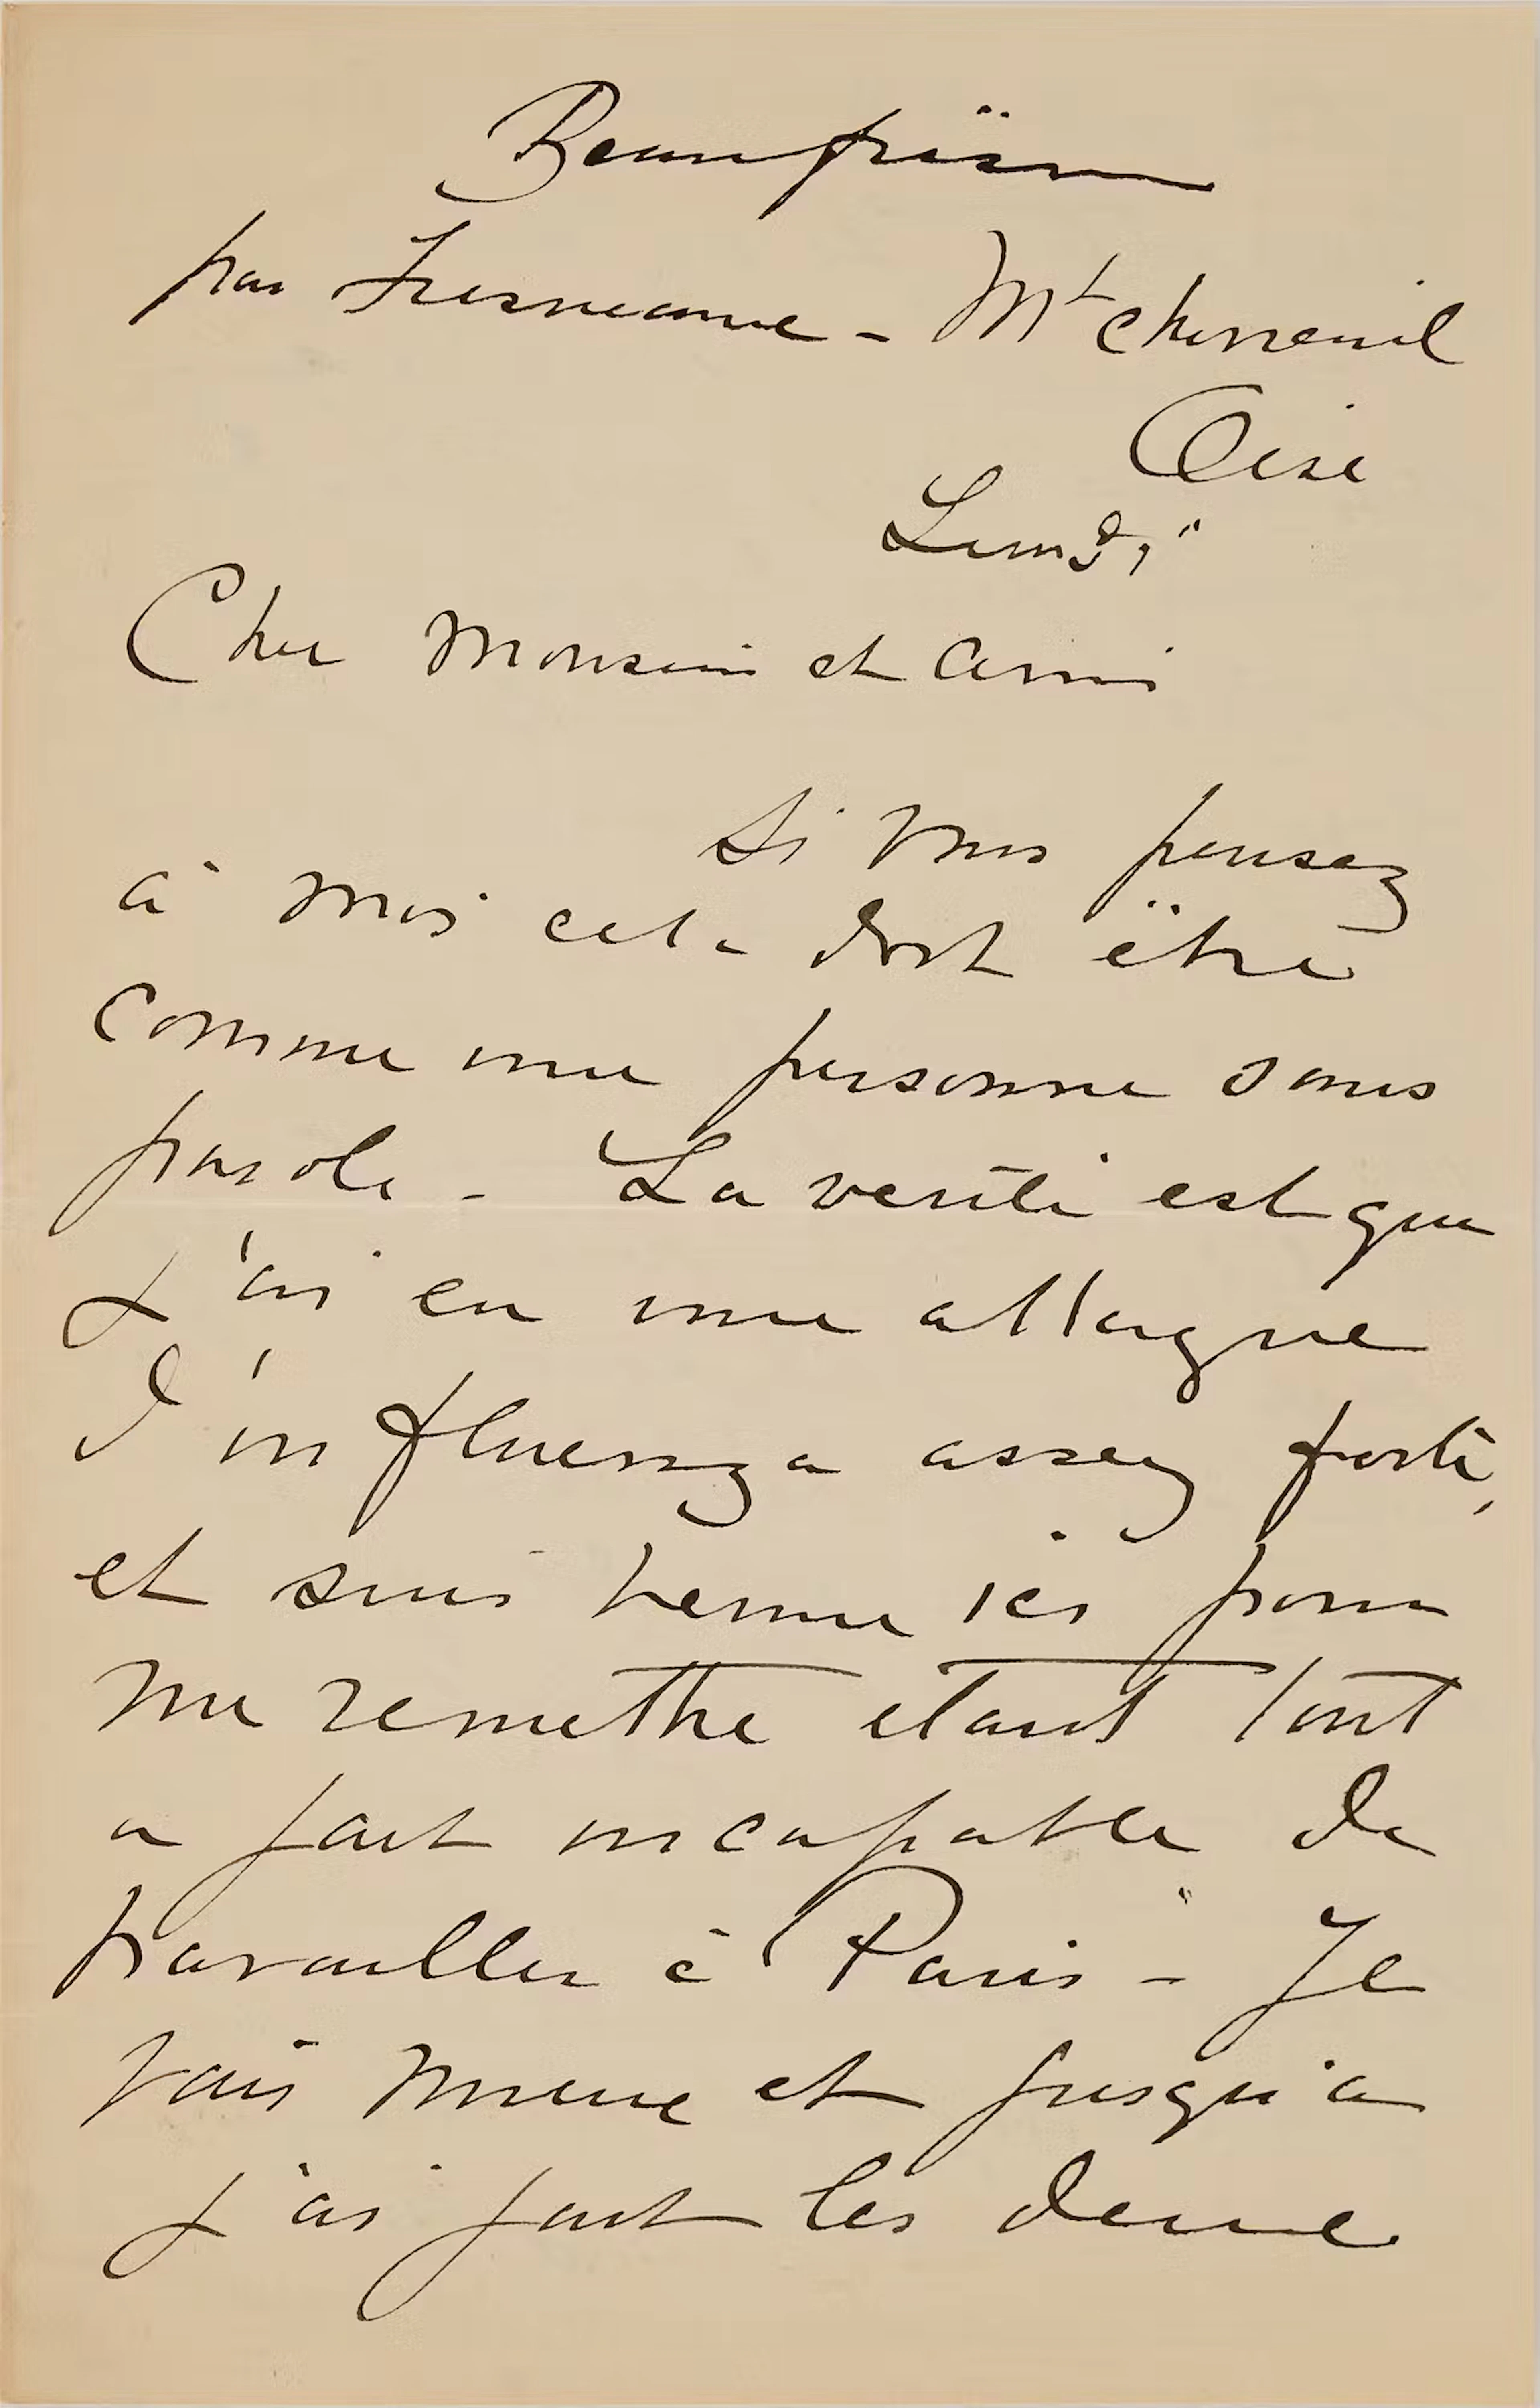 Beaufresne
par Fresneaux - Mt Chevreuil
Oise
Lundi
Cher Monsieur et ami
Si vous pensez
à moi cela doit être
comme une personne sans
parole - La verité est que
j'ai eu une attaque
d'influenza assez forte,
et suis venue ici pour
me remettre etant tout
a fait incapable de
travailler à Paris - Je
vais mieux et jusqu'a
j'ai fait les deux